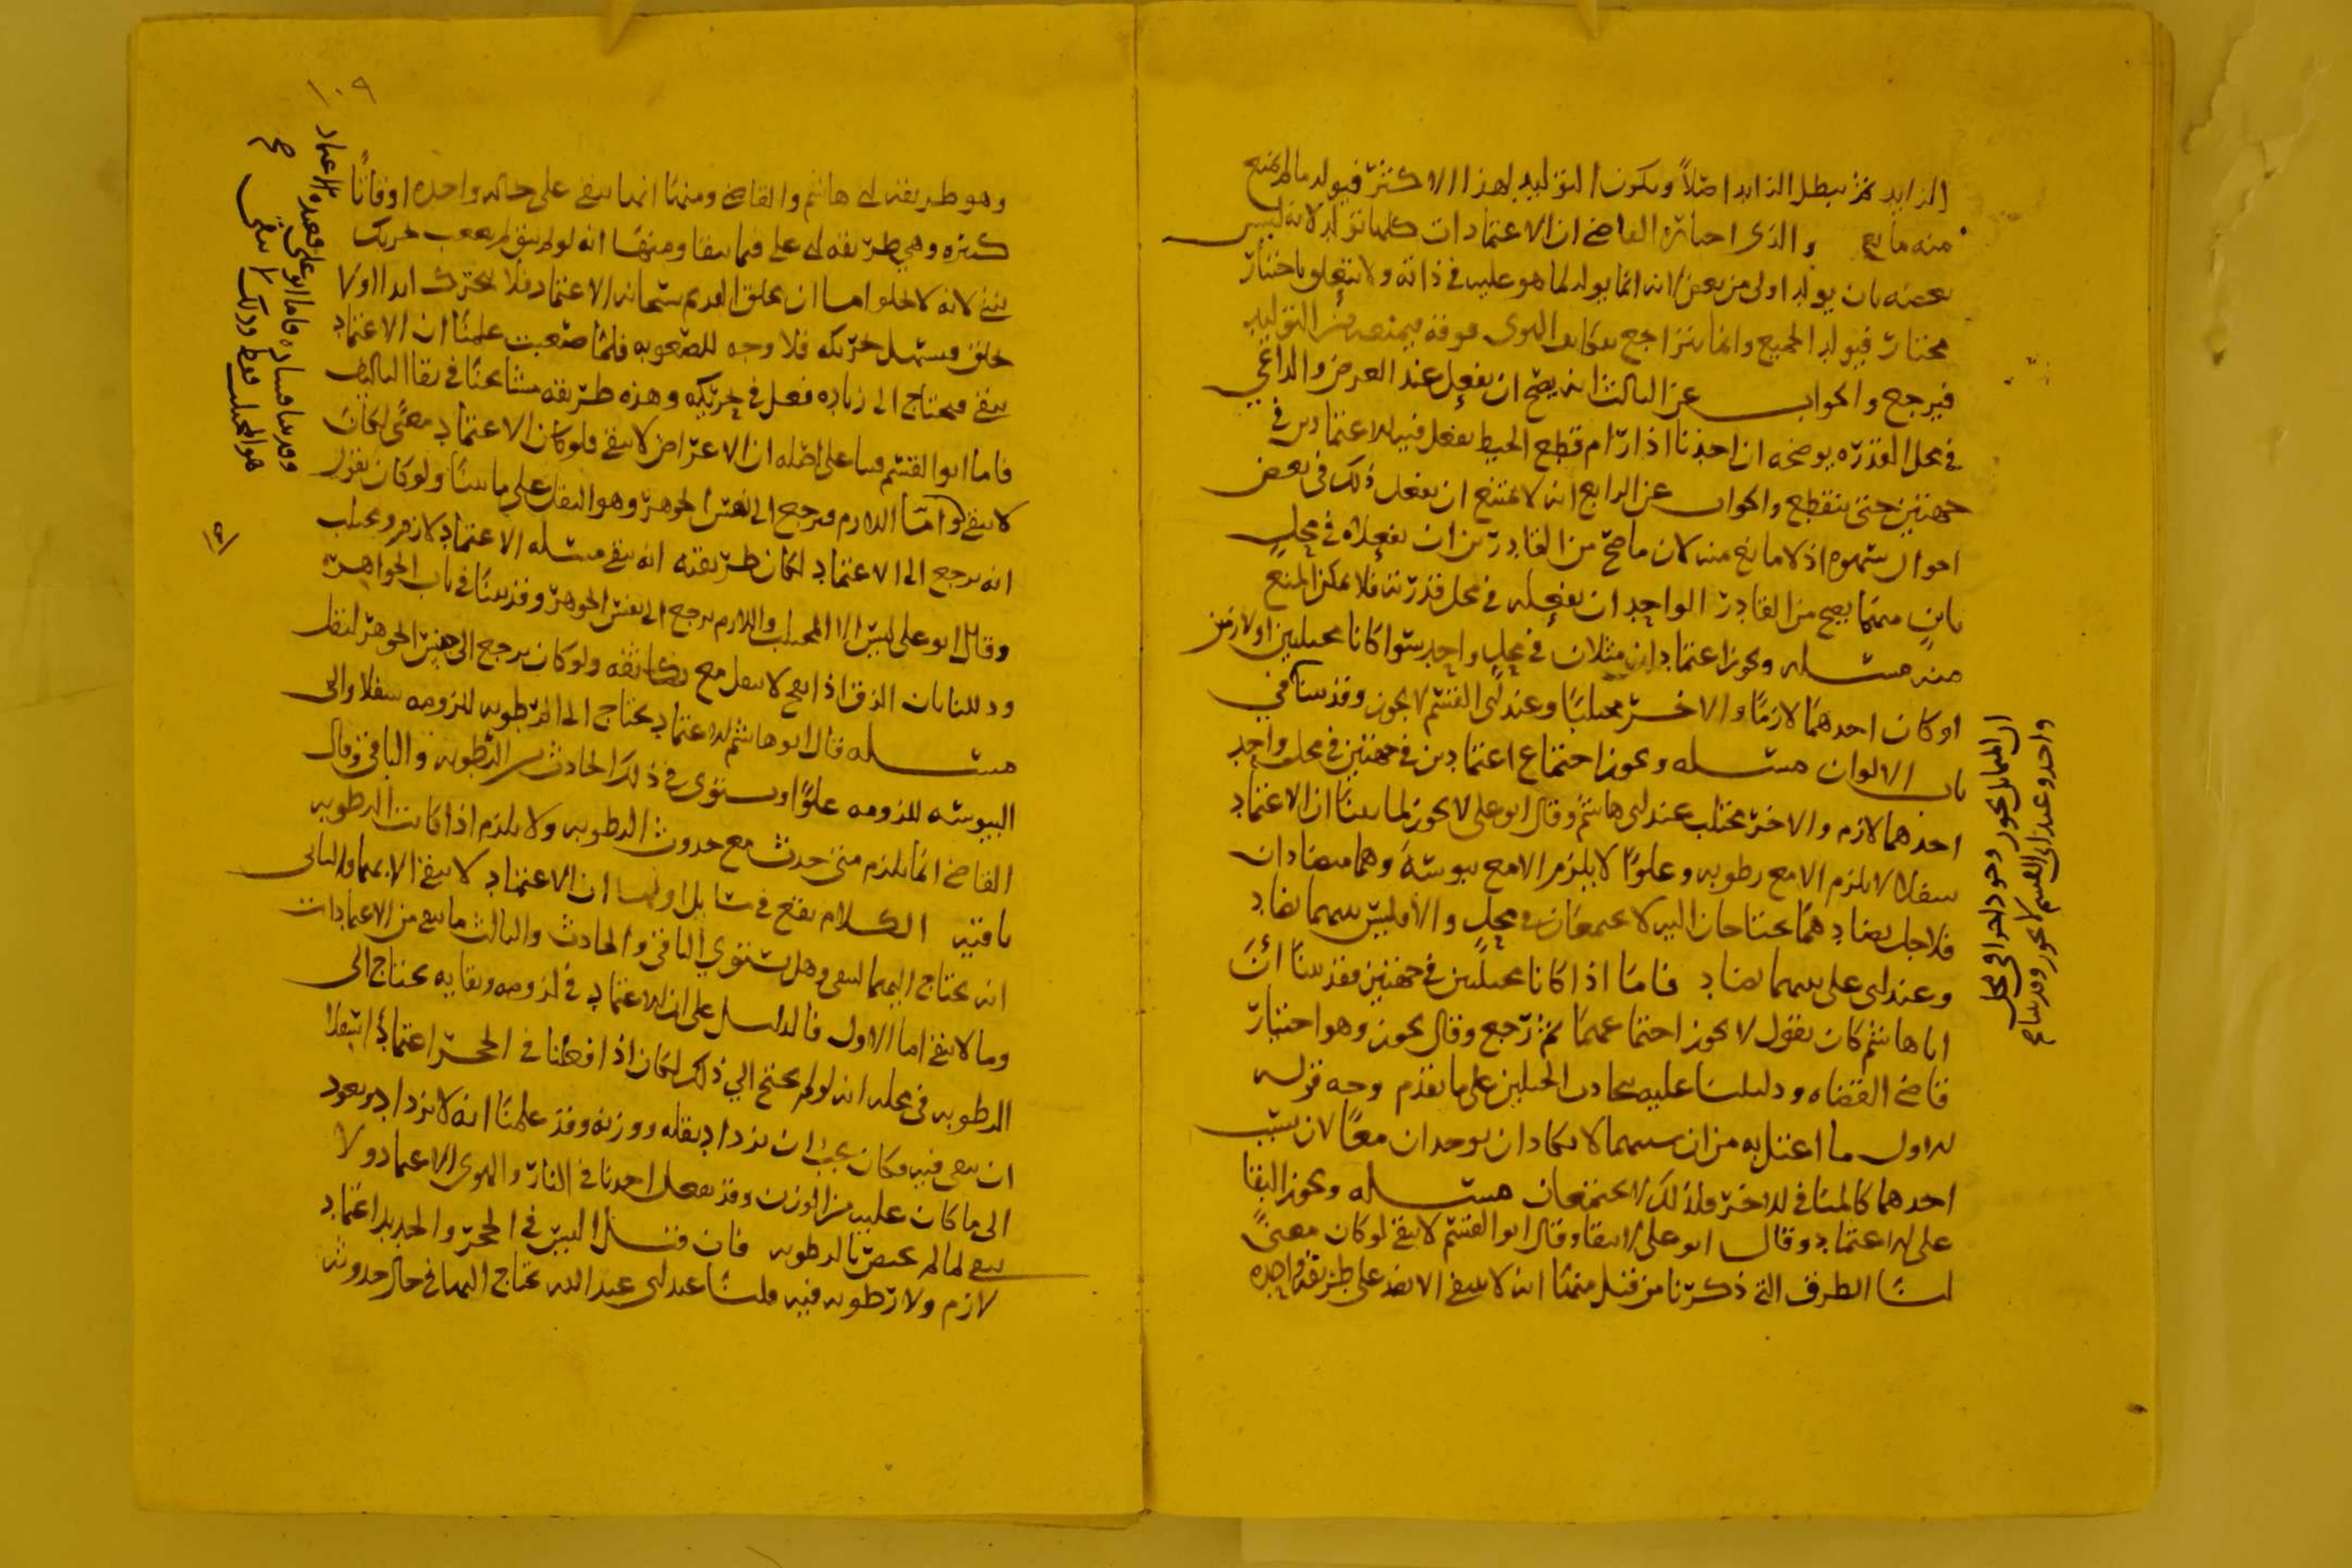 الزايد ثم يبطل الزايد اصلاً ويكون التوليد لهذا الاكثر فيولد ما لم يمنع
منه مانع والذى اختاره القاضى ان الاعتمادات كلها تولد لانه ليس
بعضه بان يولد اولى من بعض لانه انما يولد لما هو عليه فى ذاته ولا يتعلق باختيار
مختار فيولد الجميع وانما يتراجع الهوى فوقه فيمنعه من التوليد
فيرجع والجواب عن الثالث انه يصح ان يفعل عند العرض والداعى
فى محل القدره يوضحه ان احدنا اذا رام قطع الخيط يفعل فيه الاعتمادين فى
جهتين حتى ينقطع والجواب عن الرابع انه لا يمتنع ان يفعل ذلك فى بعض
احوال سهوه اذ لا مانع منه لان ما صح من القادرين ان يفعلاه فى محلٍ
باينٍ منهما يصح من القادر الواحد ان يفعله فى محل قدرته فلا يمكن المنع
منه مسله ويجوز اعتمادان مثلان فى محلٍ واحدٍ سوا كانا مجتلبين او لازمين
او كان احدهما لازمًا والاخر مجتلبًا وعند ابى القسم لا يجوز وقد بينا فى
باب الالوان مسله ويجوز اجتماع اعتمادين فى جهتين فى محل واحد
احدهما لازم والاخر مجتلب عند ابى هاشم وقال ابو على لا يجوز لما بينا ان الاعتماد
سفلا لا يلزم الا مع رطوبه وعلوًا لا يلزم الا مع يبوسة وهما متضادان
فلاجل تضاد ما يحتاجان اليه لا يجتمعان فى محلٍ والا فليس بينهما تضاد
وعند ابى على بينهما تضاد فاما اذا كانا مجتلبين فى جهتين فقد بينا ان
ابا هاشم كان يقول لا يجوز اجتماعهما ثم رجع وقال يجوز وهو اختيار
قاضى القضاه ودليلنا عليه تجاذب الحبلين على ما تقدم وجه قوله
الاول ما اعتل به من ان سببهما لا يكادان يوجدان معًا لان سبب
احدهما كالمنافى للاخر فلذلك لا يجتمعان مسله ويجوز البقا
على الاعتماد وقال ابو على لا يبقا وقال ابو القسم لا يبقى لو كان معنىً
لنا الطرق التى ذكرنا من قبل منها انه لا ينتفى الا بضد على طريقة واحده
ان المثلين يجوز وجودهما فى محل
واحد وعند ابى القسم لا يجوز وقد بينا صح
١٠٩
وهو طريقه ابى هاشم والقاضى ومنها انها يبقى على حاله واحده اوقاتًا
كثيره وهى طريقه ابى على فيما يبقا ومنها انه لو لم يبق لم يصعب تحريك
لانه لا يخلو اما ان يخلق القديم سبحانه الاعتماد فلا يتحرك ابدا او لا
يخلق فيسهل تحريكه فلا وجه للصعوبه فلما صعبت علمنا ان الاعتماد
يبقى فيحتاج الى زياده فعل فى تحريكه وهذه طريقه مشايخنا فى بقا التاليف
فاما ابو القسم فبنا على اصله ان الاعراض لا يبقى فلو كان الاعتماد معنًى لكان
لا يبقى واما اللازم فيرجع الى نفس الجوهر وهو الثقل على ما بينا ولو كان يقول
انه يرجع الى الاعتماد لكان طريقته انه يبقى مسله الاعتماد لازم ومجتلب
وقال ابو على ليس الا المجتلب واللازم يرجع الى نفس الجوهر وقد بينا فى باب الجواهر
ودللنا بان الزق اذا نفخ لا يثقل مع ولو كان يرجع الى جنس الجوهر لثقل
مسله قال ابو هاشم الاعتماد يحتاج الى الرطوبه للزومه سفلا والى
اليبوسه للزومه علوًا ويستوى فى ذلك الحادث من الرطوبه والباقى وقال
القاضى انما يلزم متى حدث مع حدوث الرطوبه ولا يلزم اذا كانت الرطوبه
باقيه الكلام يقع فى مسايل اولها ان الاعتماد لا يبقى الا بهما والثانى
انه يحتاج اليهما ليبقى وهل يستوى الباقى والحادث والثالث ما يبقى من الاعتمادات
وما لا يبقى اما الاول فالدليل على ان الاعتماد فى لزومه وبقايه يحتاج الى
الرطوبه فى محله انه لو لم يحتج الى ذلك لكان اذا فعلنا فى الحجر اعتمادًا سفلا
ان يبقى فيه فكان يجب ان يزداد ثقله ووزنه وقد علمنا انه لا يزداد ويعود
الى ما كان عليه من الوزن وقد يفعل احدنا فى النار والهوى الاعتماد ولا
يبقى لما لم يختص بالرطوبه فان قيل اليس فى الحجر والحديد اعتماد
لازم ولا رطوبه فيه قلنا عند ابى عبد الله يحتاج اليها فى حال حدوث
الاعتماد
وقد بينا فساده فاما ابو على فعنده
هو المجتلب فقط وذلك لا يبقى صح